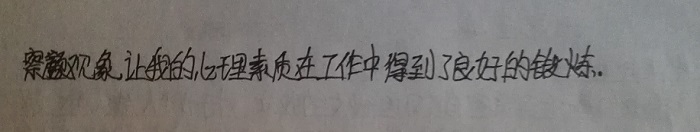 察颜观象,让我的心理素质在工作中得到了良好的锻炼.